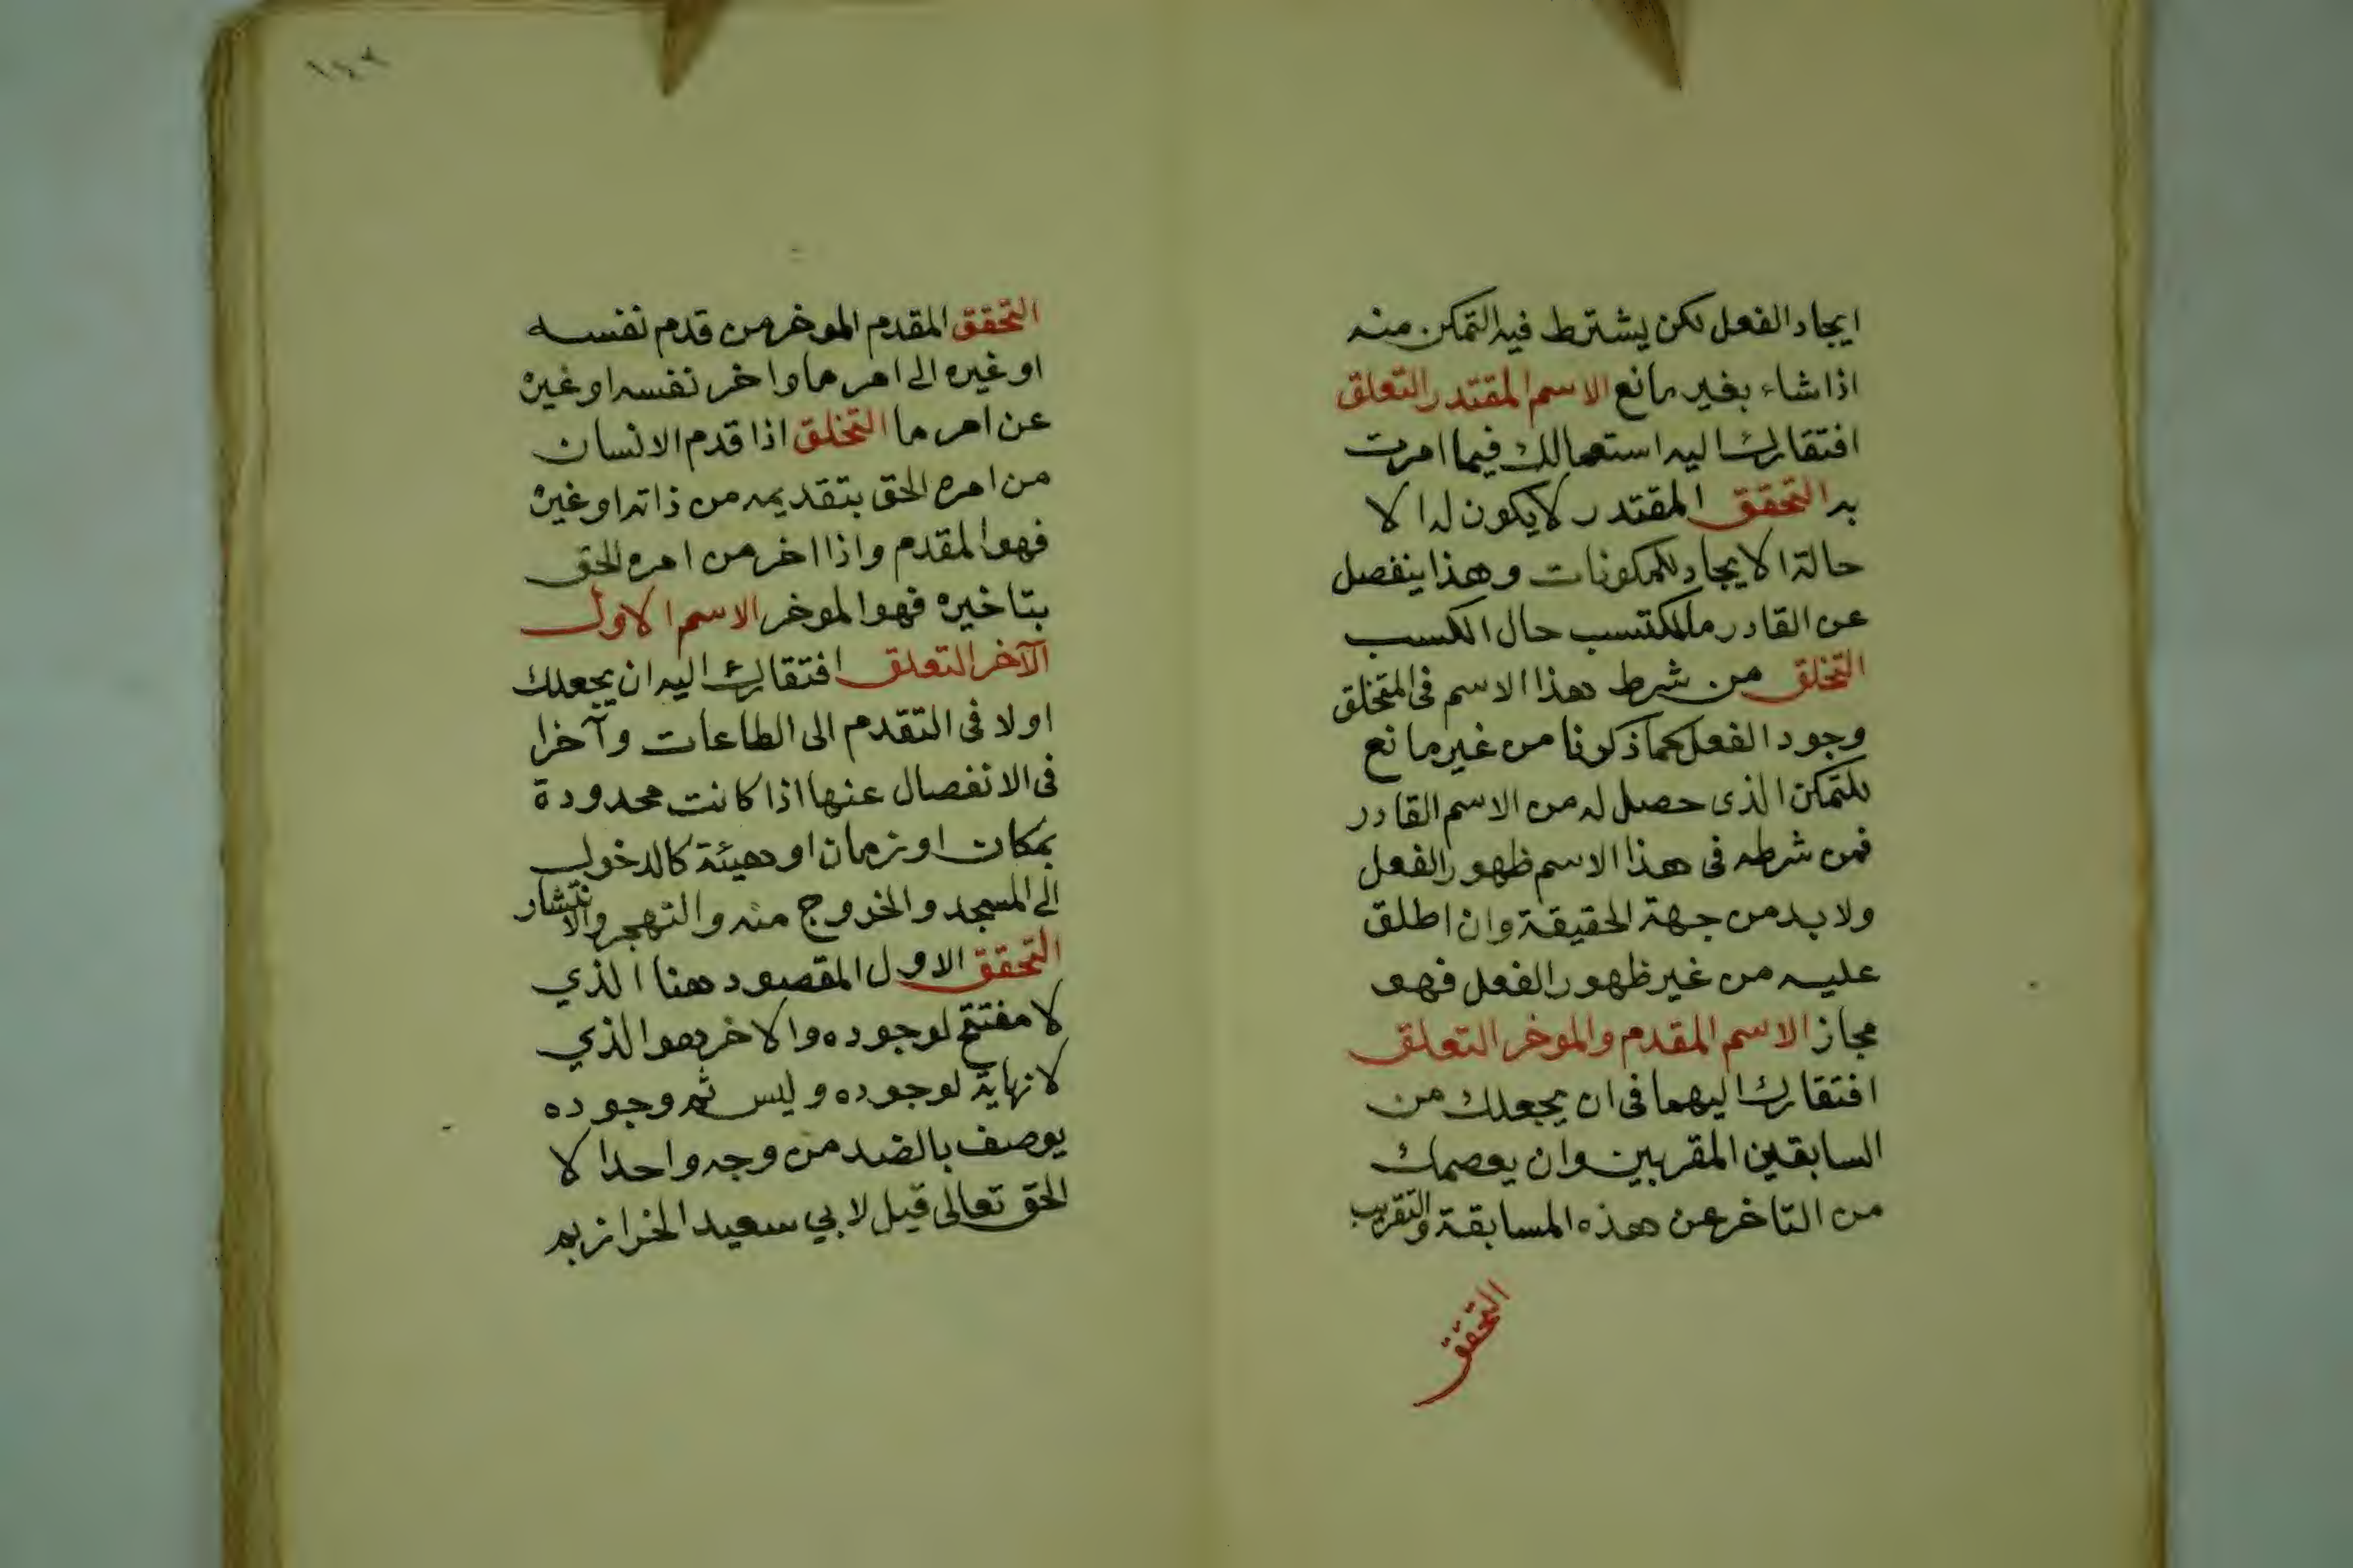 ايجاد الفعل لكن يشترط فيه التمكن منه
اذا شاء بغير مانع الاسم المقتدر التعلق
افتقارك اليه استعمالك فيما امرت
به التحقق المقتدر لا يكون له الا
حالة الايجاد للمكونات وهذا ينفصل
عن القادر ماللمكتسب حال الكسب
التخلق من شرط هذا الاسم فى المتخلق
وجود الفعل كما ذكرنا من غير مانع
للتمكن الذى حصل له من الاسم القادر
فمن شرطه فى هذا الاسم ظهور الفعل
ولا بد من جهة الحقيقة وان اطلق
عليه من غير ظهور الفعل فهو
مجاز الاسم المقدم والموخر التعلق
افتقارك اليهما فى ان يجعلك من
السابقين المقربين وان يعصمك
من التاخر عن هذه المسابقة والتقريب
التحقق
١٤٢
التحقق المقدم الموخر من قدم نفسه
او غيره الى امر ما واخر نفسه او غيره
عن امر ما التخلق اذا قدم الانسان
من امره الحق بتقديمه من ذاته او غيره
فهو المقدم واذا اخر من امره الحق
بتاخيره فهو الموخر الاسم الاول
الآخر التعلق افتقارك اليه ان يجعلك
اولا فى التقدم الى الطاعات وآخرا
فى الانفصال عنها اذا كانت محدودة
بمكان او زمان او هيئة كالدخول
الى المسجد والخروج منه والتهجر والانتشار
التحقق الاول المقصود هنا الذي
لا مفتتح لوجوده والاخر هو الذي
لا نهاية لوجوده وليس ثم وجوده
يوصف بالضد من وجه واحد الا
الحق تعالى قيل لابي سعيد الخراز بم